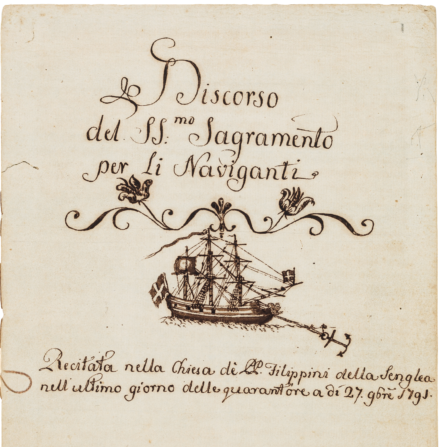 Discorso
del SS:mo Sagramento
per li Naviganti.
Recitata nella Chiesa de PP. Filippini della Senglea
nell'ultimo giorno delle quarant'ore a di 27. 9bre 1791.